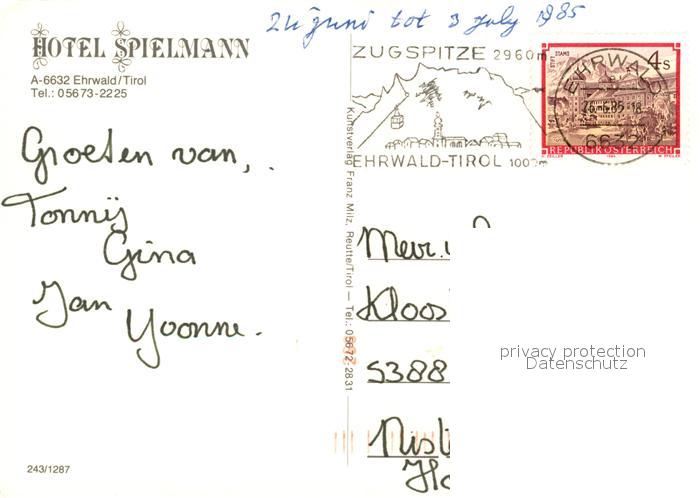 24 juni tot 3 july 1985
HOTEL SPIELMANN
A-6632 Ehrwald/Tirol
Tel.: 05673-2225
Groeten van,
Tonnij
Gina
Jan
Yvonne.
243/1287
Kunstverlag Franz Milz, Reutte/Tirol — Tel.: 05672-2831
ZUGSPITZE 2960m
EHRWALD-TIROL 1000m
STIFT STAMS
4 S
REPUBLIK ÖSTERREICH
ZEILLER 1984 W. PFEILER
EHRWALD
26.-6.85-18
6632
Mevr.
Kloos
5388
Nist
Ho
privacy protection
Datenschutz